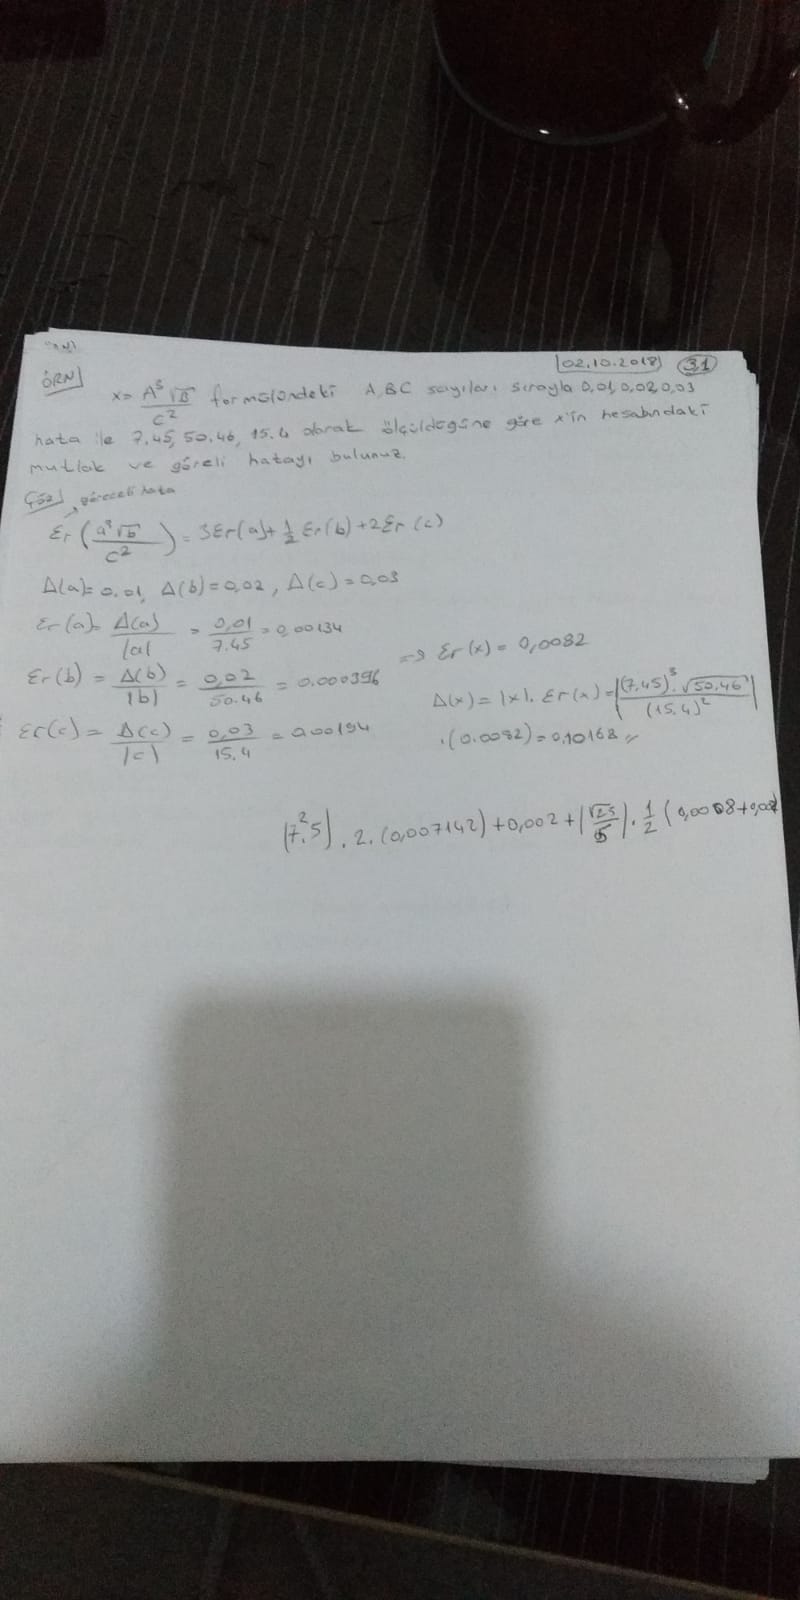 02.10.2018 31
ÖRN/ x= A³√B / C² formülündeki A,B,C sayıları sırayla 0,01,0,02,0,03
hata ile 7.45, 50.46, 15.4 olarak ölçüldüğüne göre x'in hesabındaki
mutlak ve göreli hatayı bulunuz.
Çöz/ göreceli hata
Er(a³√b / c²) = 3Er(a)+ 1/2 Er(b) +2Er(c)
Δ(a)=0.01, Δ(b)=0,02, Δ(c)=0,03
Er(a)= Δ(a)/|a| = 0,01/7.45 = 0,00134
Er(b) = Δ(b)/|b| = 0,02/50.46 = 0.000396
Er(c)= Δ(c)/|c| = 0,03/15.4 = 0,00194
=> Er(x) = 0,0082
Δ(x)= |x|. Er(x)= |(7.45)³.√50.46 / (15.4)²|
.(0.0082)=0,10168
|7.5|² . 2. (0,007142)+0,002+|√25/5|. 1/2 (0,0008+0,002